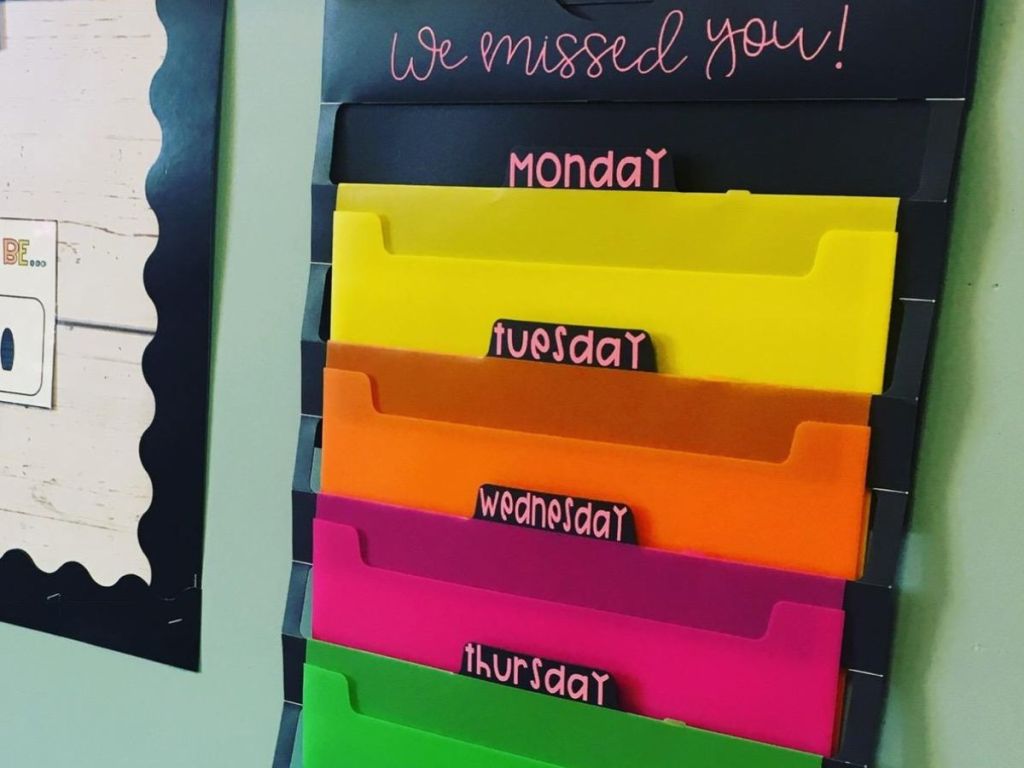 We missed you!
Monday
BE...
tuesday
wednesday
thursday